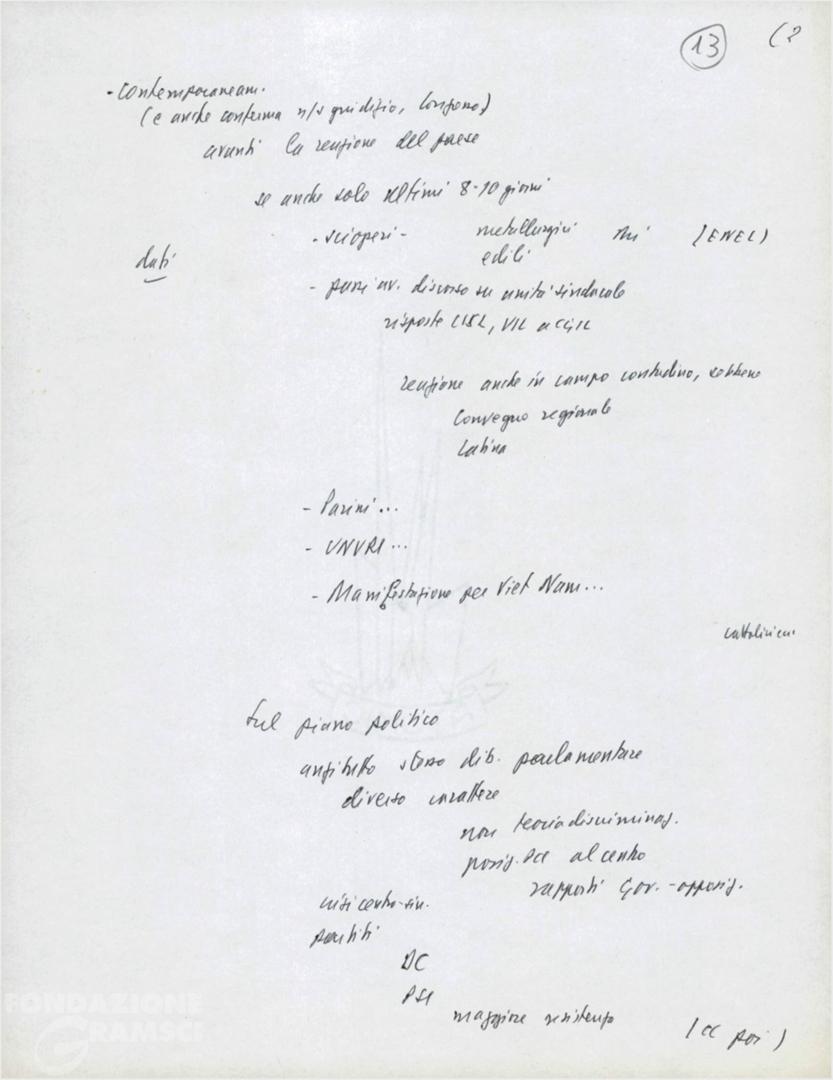 13 (2
- Contemporaneam.
(e anche conferma n/s giudizio, Longo)
avanti la reazione del paese
se anche solo ultimi 8-10 giorni
- scioperi - metallurgici Mi (ENEL)
edili
dati
- passi av. discorso su unità sindacale
risposte CISL, UIL a CGIL
reazione anche in campo contadino, sebbene
Convegno regionale
Latina
- Parini...
- UNURI...
- Manifestazione per Viet Nam...
cattolici
Sul piano politico
anzitutto stesso dib. parlamentare
diverso carattere
non teoria discriminaz.
posiz. PCI al centro
rapporti Gov.-opposiz.
crisi centro-sin.
partiti
DC
PSI
maggiore resistenza (CC poi)
FONDAZIONE
GRAMSCI